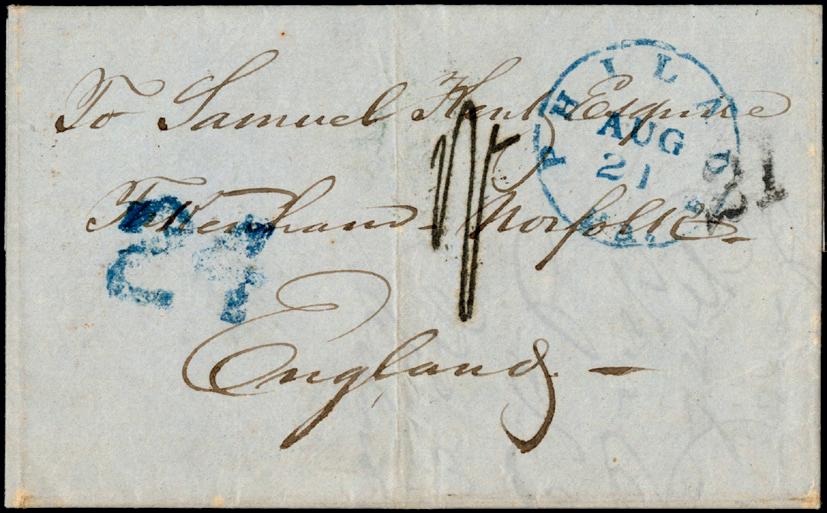 To Samuel Kent Esquire
Fakenham - Norfolk -
England -
PHILADA. PA.
AUG
21
24
21